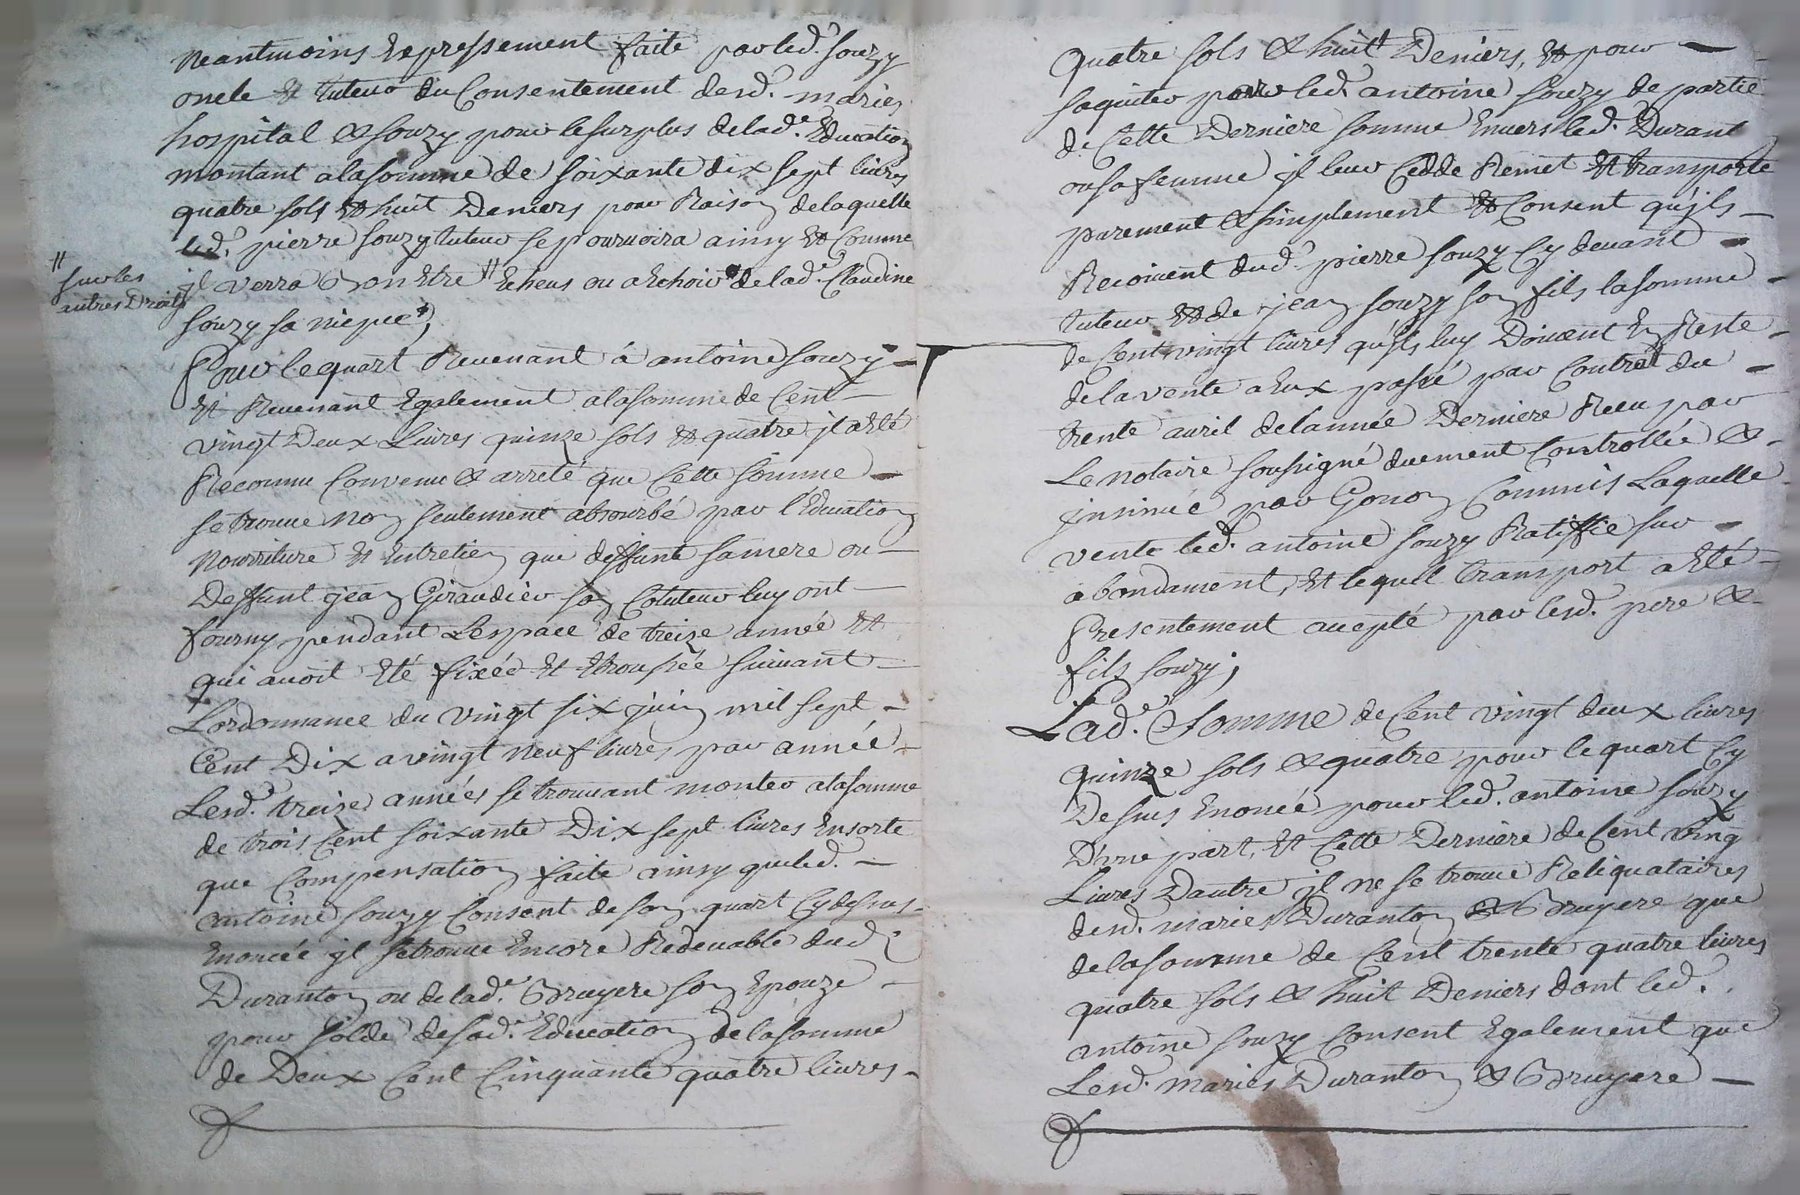 neantmoins Expressement faite par led. souzy
oncle & tuteur du Consentement desd. maries
hospital & souzy pour le surplus de lad.e Education
montant a la somme de soixante dix sept livres
quatre sols & huit Deniers pour Raison de laquelle
led. pierre souzy tuteur se pourvoira ainsy & Comme
//
sur les
autres Droits
il verra bon Etre // Echeus ou a Echoir de lad.e Claudine
souzy sa niepce;
Pour le quart Revenant à antoine souzy
Et Revenant Egalement a la somme de Cent
vingt Deux Livres quinze sols & quatre il a Eté
Reconnu Convenu & arreté que Cette somme
se trouve non seulement absorbé par l'Education
Nourriture Et Entretien que deffunte sa mere ou
Deffunt jean Giraudier son Cotuteur luy ont
fourny pendant L'espace de treize année &
qui avoit Eté fixée Et  suivant
L'ordonnance du vingt six juin mil sept
Cent Dix a vingt neuf livres par année
Lesd.e treize années se trouvant monter a la somme
de trois Cent soixante Dix sept livres Ensorte
que Compensation faite ainsy que led.
antoine souzy Consent de son quart Cy dessus
Enoncée il se trouve Encore Redevable dud.
Duranton ou de lad.e Bruyere son Epouze
pour solde de sad. Education de la somme
de Deux Cent Cinquante quatre livres
quatre sols & huit Deniers, & pour
saquiter par led. antoine souzy de partie
de Cette Derniere somme Envers led. Durant
ou sa femme il leur Cedde Remet Et transporte
purement & simplement & Consent qu'ils
Recoivent dud. pierre souzy Cy devant
tuteur & de jean souzy son fils la somme
de Cent vingt livres qu'ils luy Doivent En Reste
de la vente a Eux passé par Contrat du
trente avril de l'année Derniere Receu par
Le notaire soussigné duement Controllée &
insinué par Gonon Commis Laquelle
vente led. antoine souzy Ratiffie sur
abondament, Et lequel transport a Eté
Presentement accepté par lesd. pere &
fils souzy;
Lad.e Somme de Cent vingt deux livres
quinze sols & quatre pour le quart Cy
Dessus Enoncée pour led. antoine souzy
D'une part, Et Cette Derniere de Cent vingt
Livres Dautre il ne se trouve Reliquataires
desd. maries Duranton & Bruyere que
de la somme de Cent trente quatre livres
quatre sols & huit Deniers dont led.
antoine souzy Consent Egalement que
Lesd. maries Duranton & Bruyere